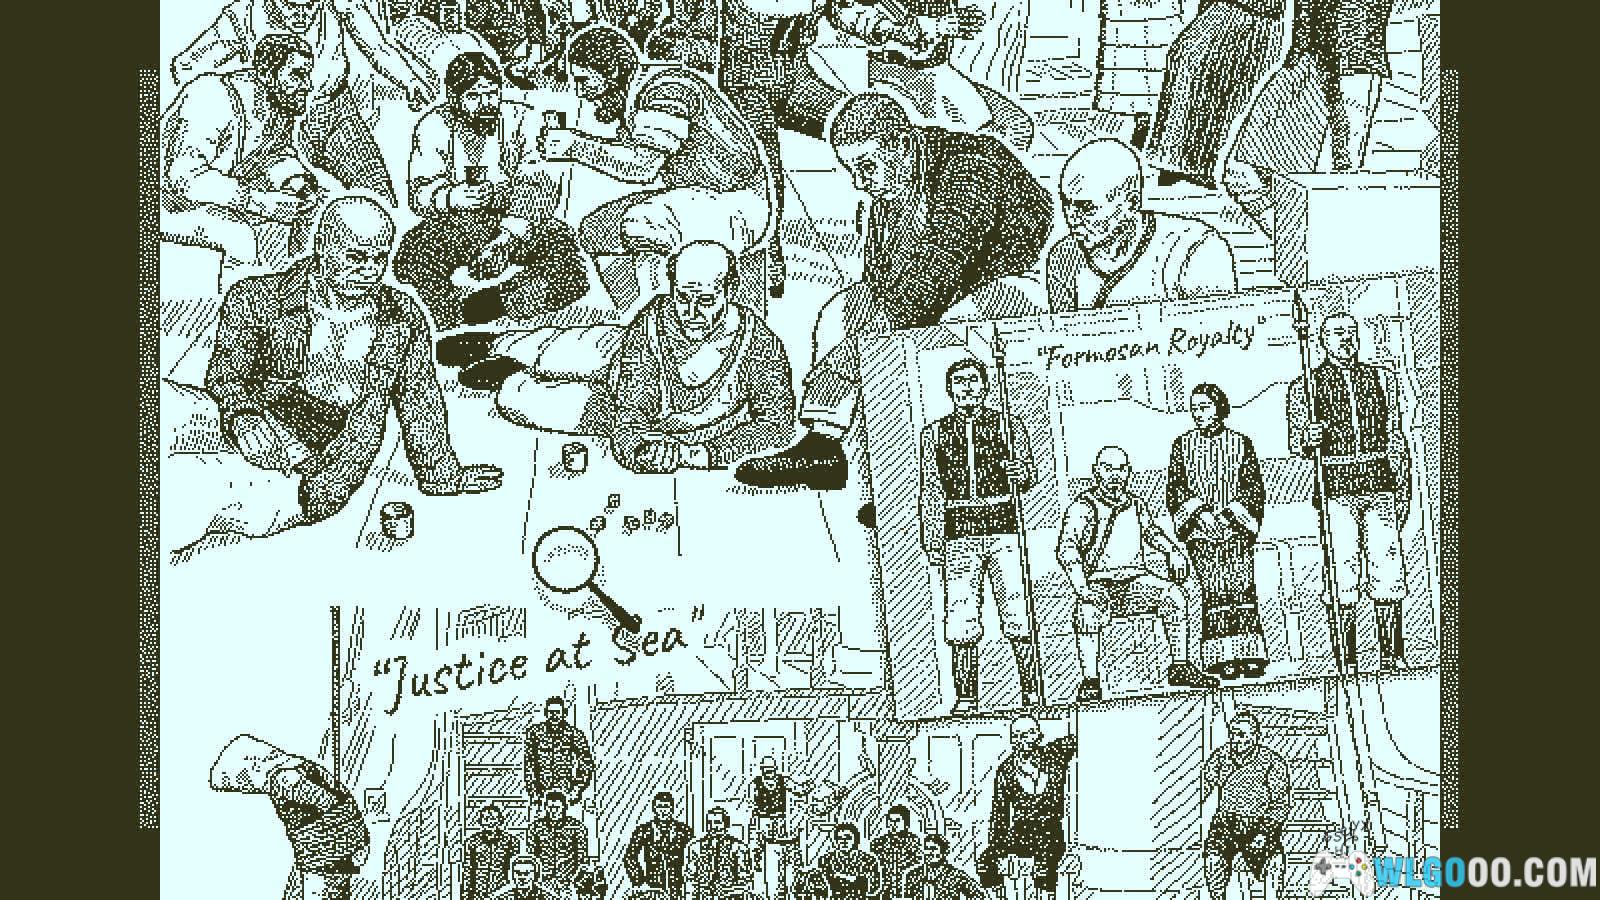 "Formosan Royalty"
"Justice at Sea"
WLGOOO.COM